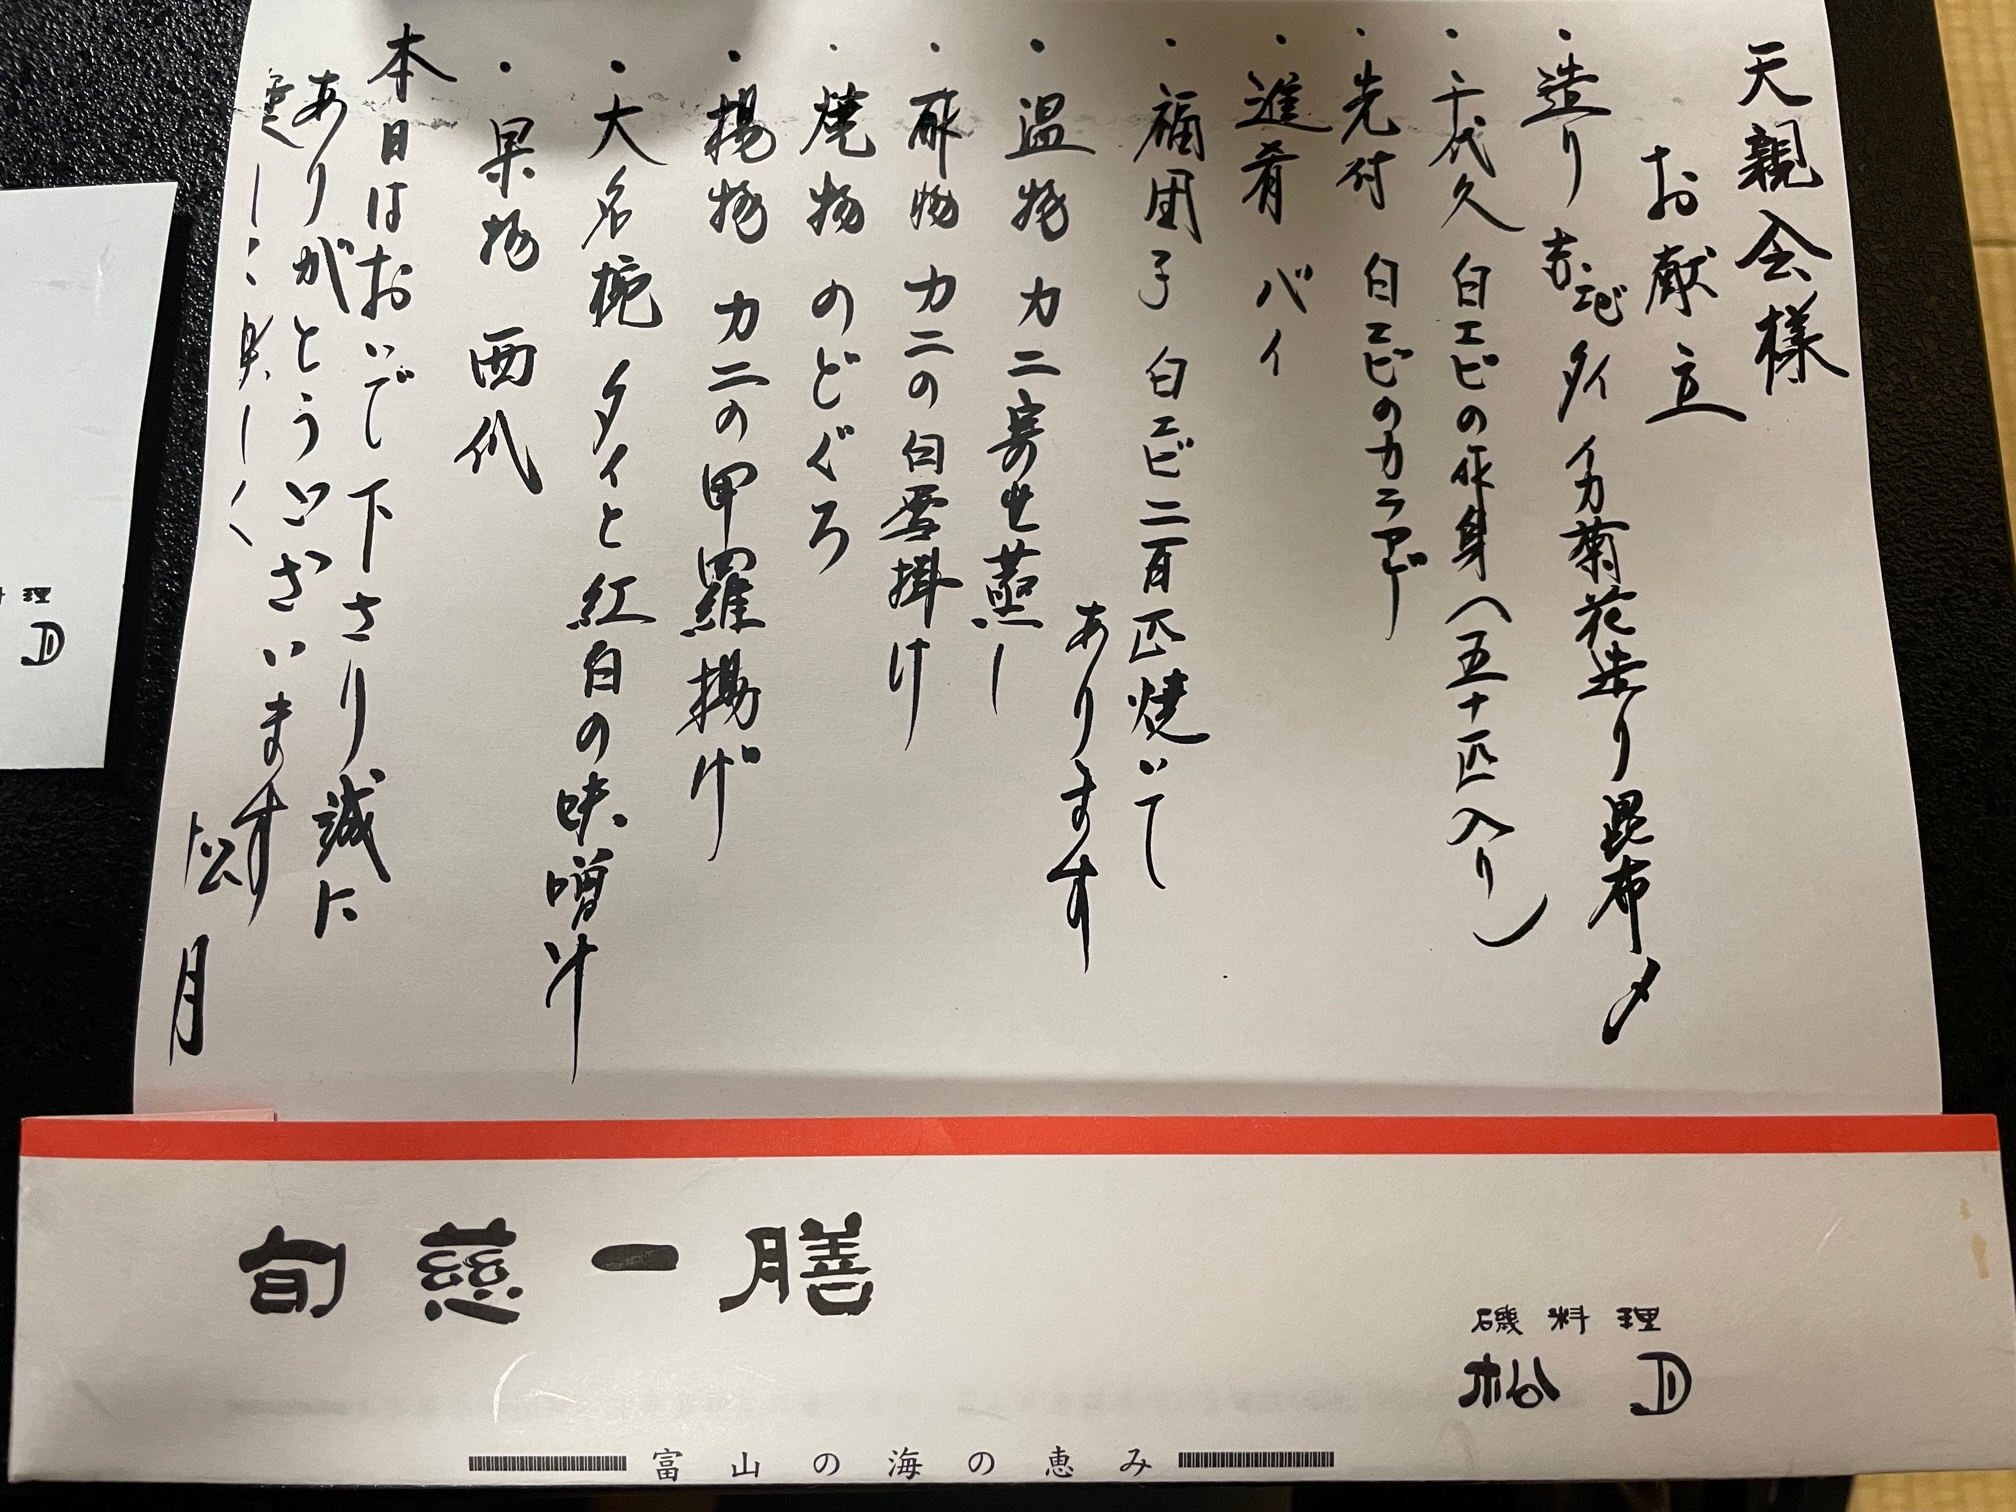 天親会様
お献立
・造り 赤エビ タイ イカ菊花造り 昆布〆
・千代久 白エビの作身(五十匹入り)
・先付 白エビのカラアゲ
・進肴 バイ
・福団子 白エビ二百匹焼いて
あります
・温物 カニ寄せ蒸し
・酢物 カニの白雪掛け
・焼物 のどぐろ
・揚物 カニの甲羅揚げ
・大名椀 タイと紅白の味噌汁
・果物 西瓜
本日はおいで下さり誠に
ありがとうございます
松月
旬慈一膳
磯料理
松月
富山の海の恵み
料理
月